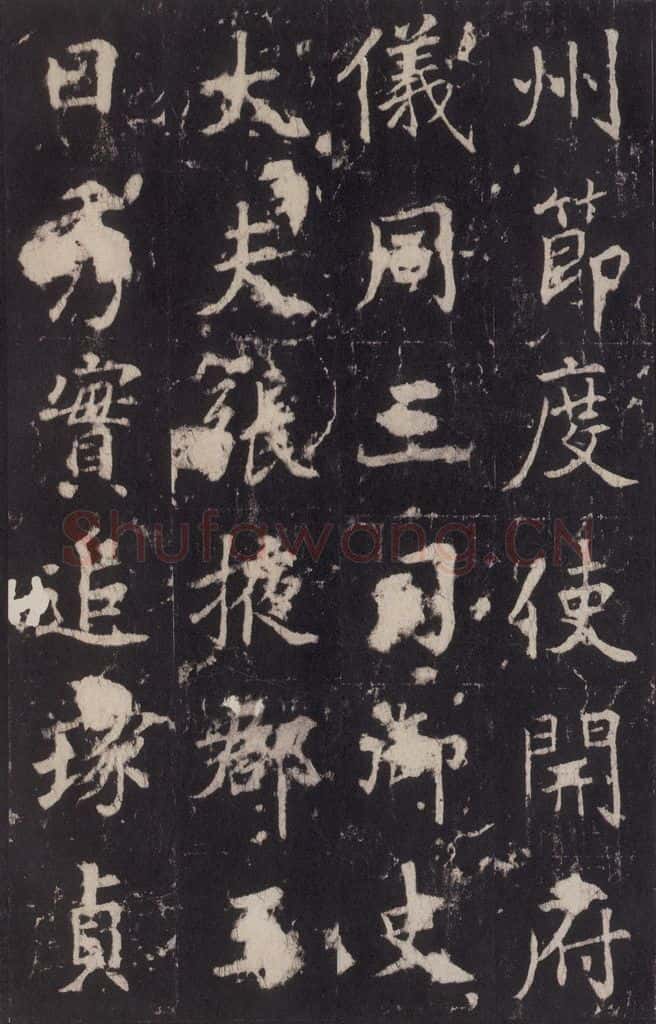 州節度使開府
儀同三司御史
大夫張掖郡王
曰秀實追琢貞
Shufawang.CN